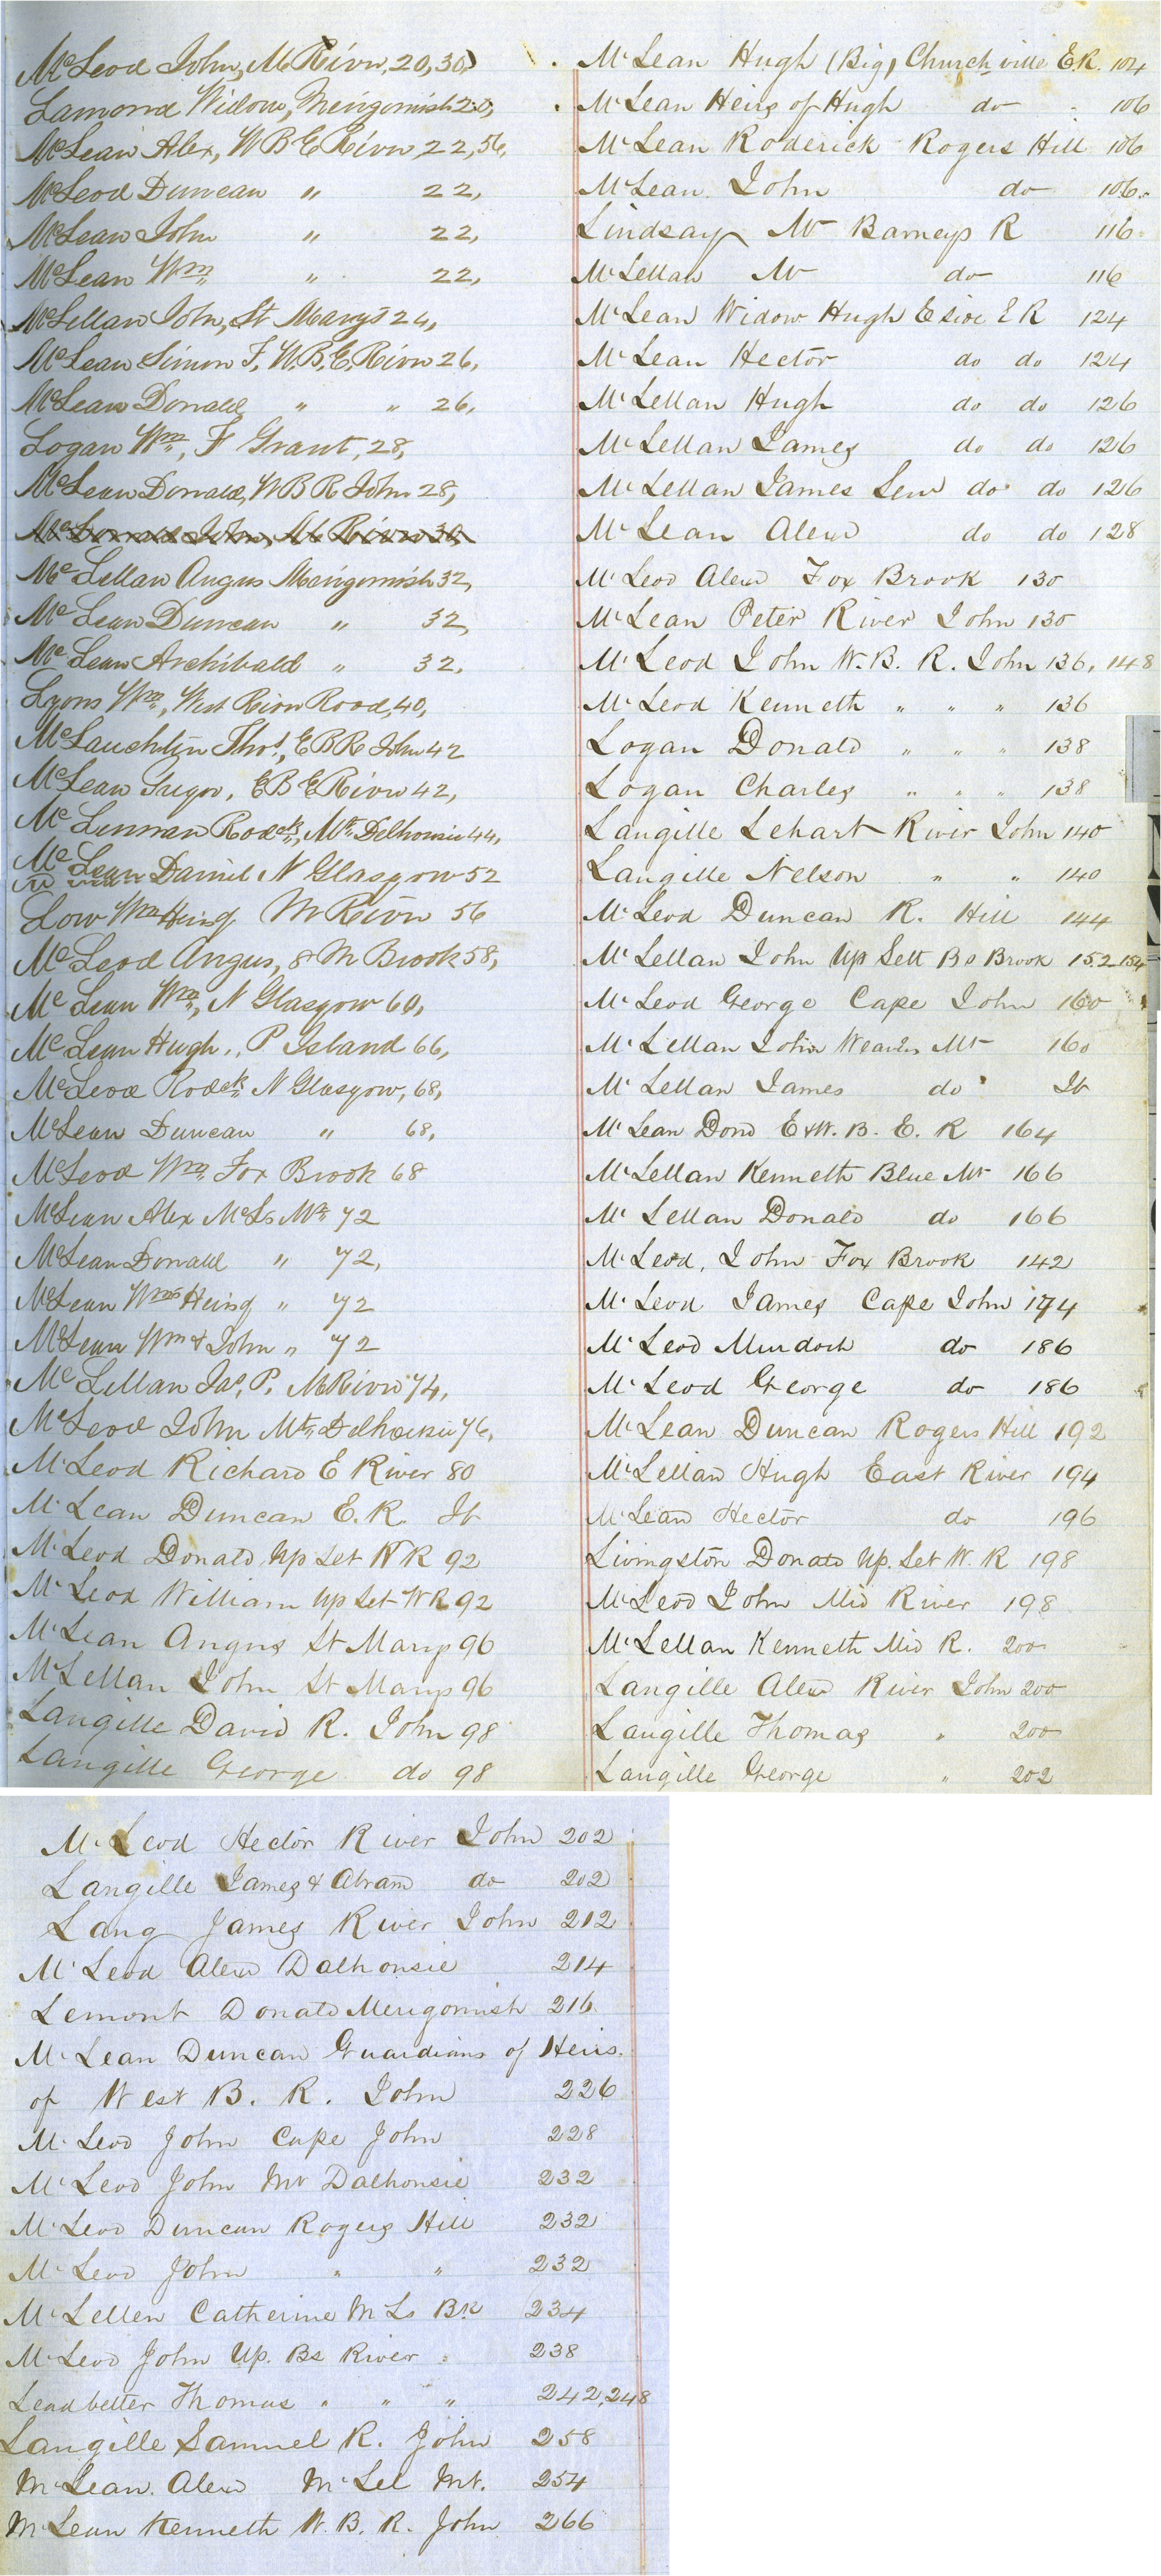 McLeod John, M River, 20, 30,
Lamond Widow, Merigomish 20,
McLean Alex, W B E River, 22, 56,
McLeod Duncan " 22,
McLean John " 22,
McLean Wm " 22,
McLellan John, St Marys 24,
McLean Simon F, W. B. E. River 26,
McLean Donald " " 26,
Logan Wm, F Grant, 28,
McLean Donald, W B R John 28,
McLellan Angus Merigomish 32,
McLean Duncan " 32,
McLean Archibald " 32,
Lyons Wm, West River Road, 40,
McLauchlin Thos, E B R John 42
McLean Gregor, E B E River 42,
McLennan Rodck, Mt Delhousie 44,
McLean Daniel N Glasgow 52
Low Wm Heirs M River 56
McLeod Angus, 8 M Brook 58,
McLean Wm, N Glasgow 60,
McLean Hugh, P Island 66,
McLeod Rodck N Glasgow, 68,
McLean Duncan " 68,
McLeod Wm Fox Brook 68
McLean Alex McLs Mt 72
McLean Donald " 72,
McLean Wms Heirs " 72
McLean Wm & John " 72
McLellan Jas, P. M River 74,
McLeod John Mt Delhousie 76,
McLeod Richard E River 80
McLean Duncan E. R.
McLeod Donald Up Set W R 92
McLeod William Up Set W R 92
McLean Angus St Marys 96
McLellan John St Marys 96
Langille David R. John 98
Langille George do 98
McLean Hugh (Big) Churchville E.R. 104
McLean Heirs of Hugh do 106
McLean Roderick Rogers Hill 106
McLean John do 106
Lindsay Mr Barneys R 116
McLellan Mr do 116
McLean Widow Hugh E side E R 124
McLean Hector do do 124
McLellan Hugh do do 126
McLellan James do do 126
McLellan James Senr do do 126
McLean Alexr do do 128
McLeod Alexr Fox Brook 130
McLean Peter River John 130
McLeod John W. B. R. John 136, 148
McLeod Kenneth " " " 136
Logan Donald " " " 138
Logan Charles " " " 138
Langille Lehart River John 140
Langille Nelson " " 140
McLeod Duncan R. Hill 144
McLellan John Up Sett Bs Brook 152-154
McLeod George Cape John 160
McLellan John Weavers Mt 160
McLellan James do
McLean Dond E & W. B. E. R 164
McLellan Kenneth Blue Mt 166
McLellan Donald do 166
McLeod, John Fox Brook 142
McLeod James Cape John 174
McLeod Murdoch do 186
McLeod George do 186
McLean Duncan Rogers Hill 192
McLellan Hugh East River 194
McLean Hector do 196
Livingston Donald Up. Set W. R 198
McLeod John Mid River 198
McLellan Kenneth Mid R. 200
Langille Alexr River John 200
Langille Thomas " 200
Langille George " 202
McLeod Hector River John 202
Langille James & Abram do 202
Lang James River John 212
McLeod Alexr Dalhousie 214
Lemont Donald Merigomish 216
McLean Duncan Guardians of Heirs.
of West B. R. John 226
McLeod John Cape John 228
McLeod John Mt Dalhousie 232
McLeod Duncan Rogers Hill 232
McLeod John " " 232
McLellen Catherine McLs Bk 234
McLeod John Up. Bs River 238
Leadbetter Thomas " " " 242, 248
Langille Samuel R. John 258
McLean. Alexr McLel Mt. 254
McLean Kenneth W. B. R. John 266